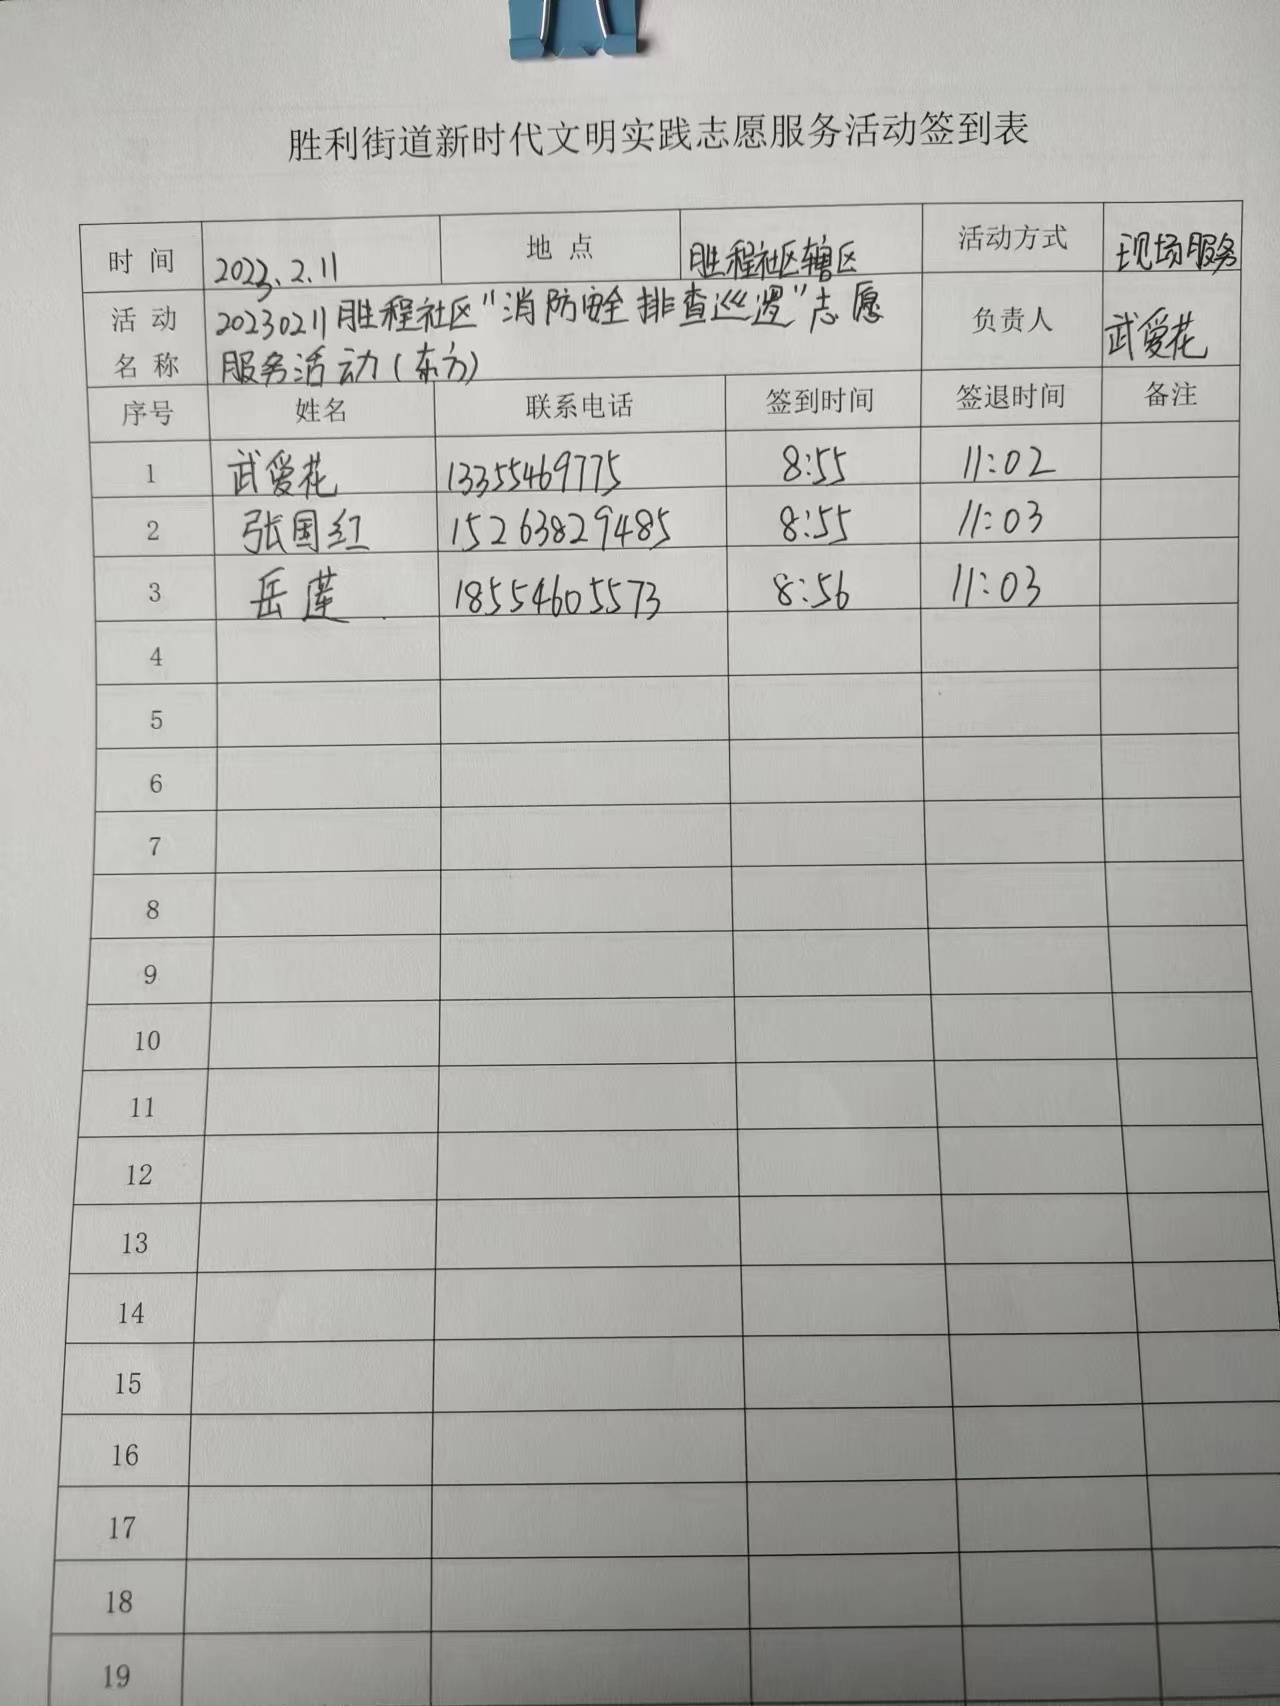 胜利街道新时代文明实践志愿服务活动签到表
时 间 2023.2.11 地 点 胜程社区辖区 活动方式 现场服务
活 动 20230211胜程社区"消防安全排查巡逻"志愿 负责人 武爱花
名 称 服务活动(东方)
序号 姓名 联系电话 签到时间 签退时间 备注
1 武爱花 13355469775 8:55 11:02
2 张国红 15263829485 8:55 11:03
3 岳莲 18554605573 8:56 11:03
4
5
6
7
8
9
10
11
12
13
14
15
16
17
18
19